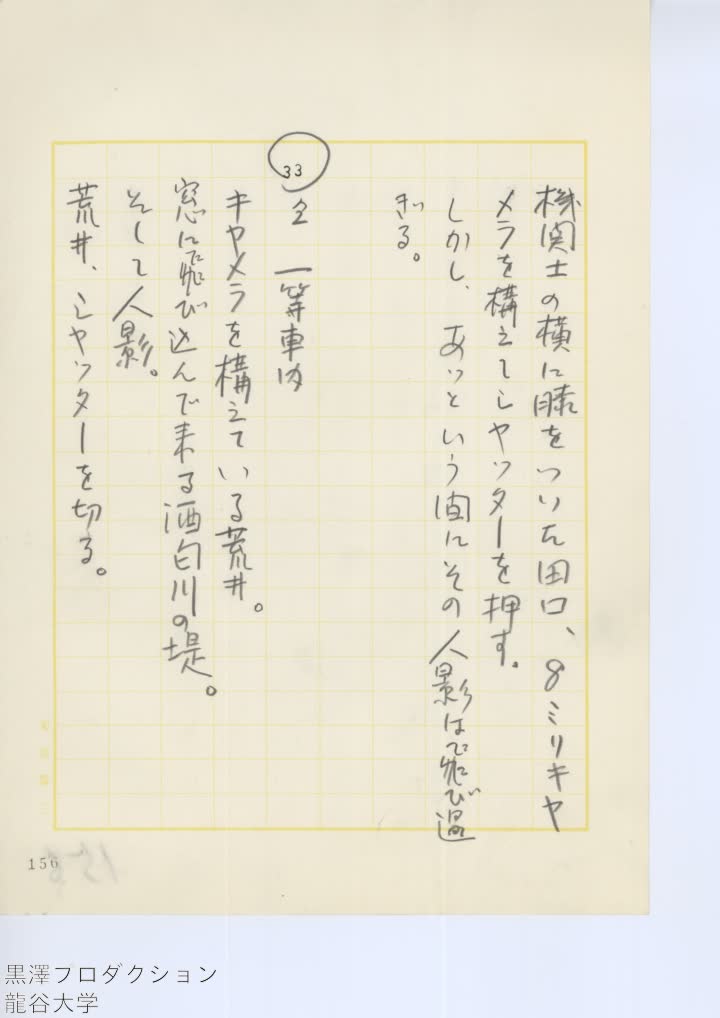 機関士の横に膝をついた田口、8ミリキャ
メラを構えてシャッターを押す。
しかし、あッという間にその人影は飛び過
ぎる。
33
仝 一等車内
キャメラを構えている荒井。
窓に飛び込んで来る酒匂川の堤。
そして人影。
荒井、シャッターを切る。
156
黒澤プロダクション
龍谷大学